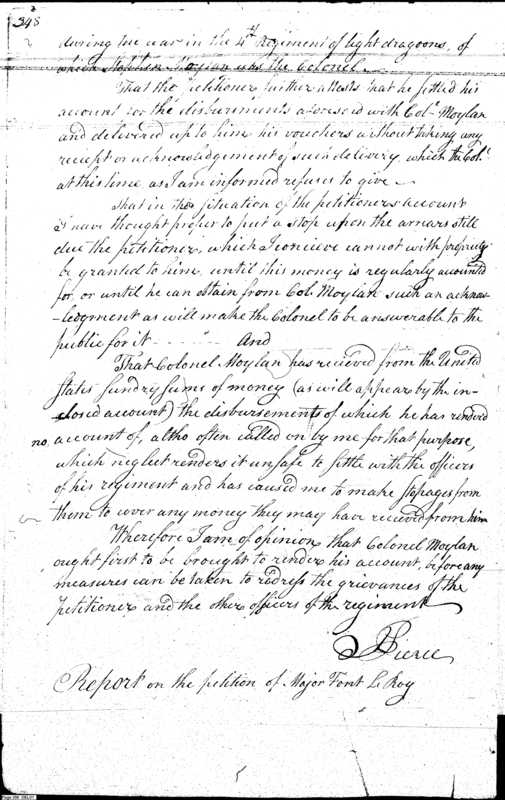 348
during the war in the 4th Regiment of light dragoons, of
which Stephen Moylan was the Colonel.
That the petitioner further attests that he settled his
account for the disbursments aforesaid with Colo. Moylan
and delivered up to him his vouchers without taking any
receipt or acknowledgement of such delivery, which the Colo.
at this time as I am informed refuses to give
That in the situation of the petitioners account
I have thought proper to put a stop upon the arrears still
due the petitioner, which I concieve cannot with propriety
be granted to him until this money is regularly accounted
for or until he can obtain from Col. Moylan such an acknow-
-ledgment as will make the Colonel to be answerable to the
public for it And
That Colonel Moylan has recieved from the United
States sundry sums of money (as will appear by the in-
-closed account) the disbursements of which he has rendered
no account of, altho often called on by me for that purpose,
which neglect renders it unsafe to settle with the officers
of his regiment and has caused me to make stopages from
them to cover any money they may have received from him
Wherefore I am of opinion that Colonel Moylan
ought first to be brought to render his account, before any
measures can be taken to redress the grievances of the
Petitioner and the other officers of the regiment
Pierce
Report on the petition of Major Font Le Roy